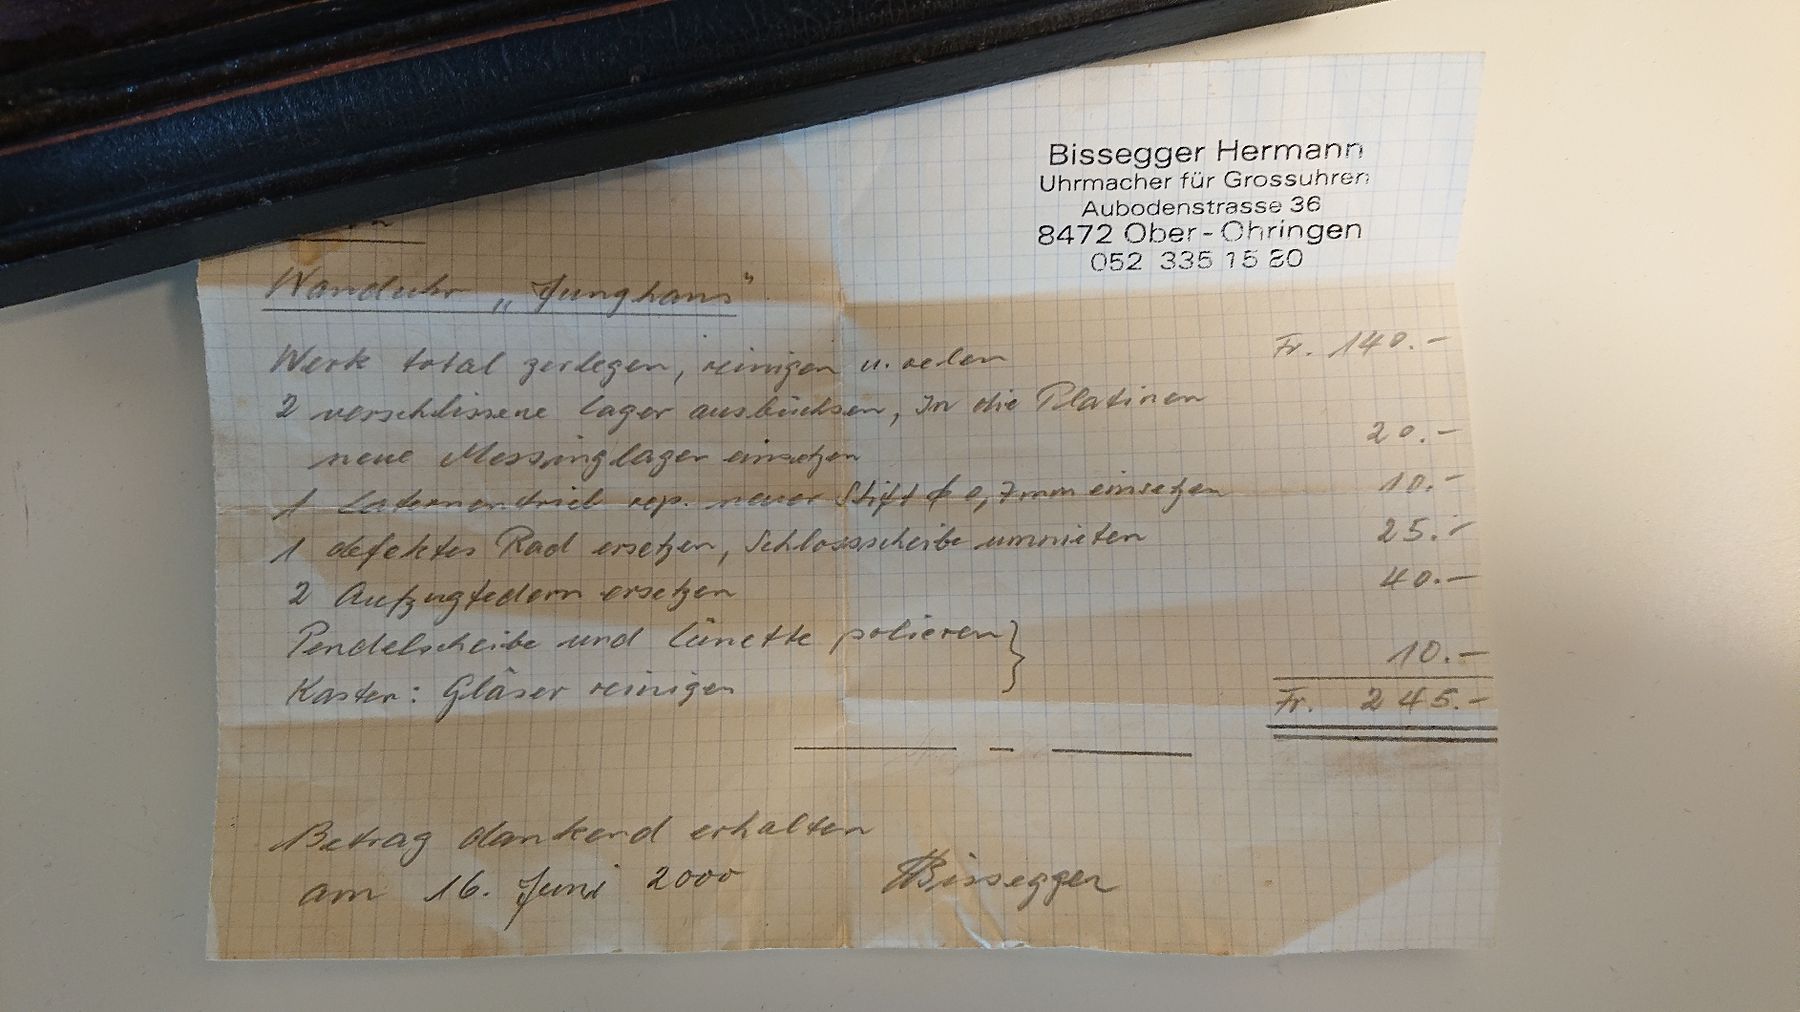 Bissegger Hermann
Uhrmacher für Grossuhren
Aubodenstrasse 36
8472 Ober-Ohringen
052 335 15 80
Wanduhr „Junghans"
Werk total zerlegen, reinigen u. oelen Fr. 140.-
2 verschlissene Lager ausbüchsen, In die Platinen
neue Messinglager einsetzen 20.-
1 Laternentrieb rep. neuer Stift ϕ 0,7mm einsetzen 10.-
1 defektes Rad ersetzen, Schlossscheibe umnieten 25.-
2 Aufzugfedern ersetzen 40.-
Pendelscheibe und Lünette polieren
Kasten: Gläser reinigen 10.-
Fr. 245.-
Betrag dankend erhalten
am 16. Juni 2000 HBissegger